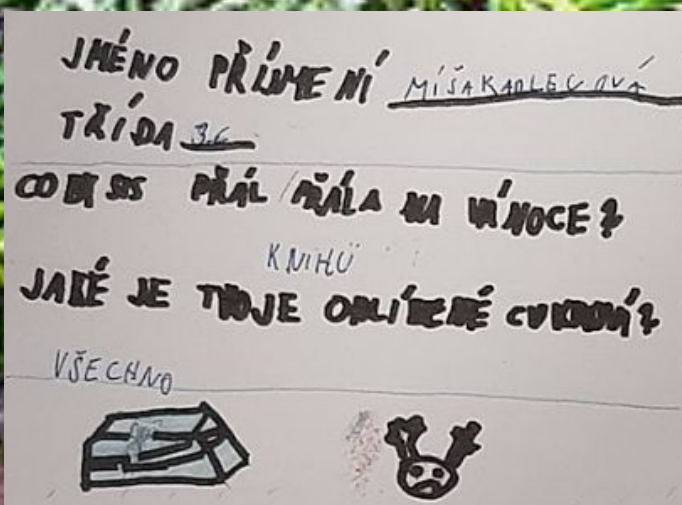 JMÉNO PŘÍJMENÍ MÍŠA KADLECOVÁ
TŘÍDA 3.C
CO BY SIS PŘÁL/PŘÁLA NA VÁNOCE?
KNIHU
JAKÉ JE TVOJE OBLÍBENÉ CUKROVÍ?
VŠECHNO